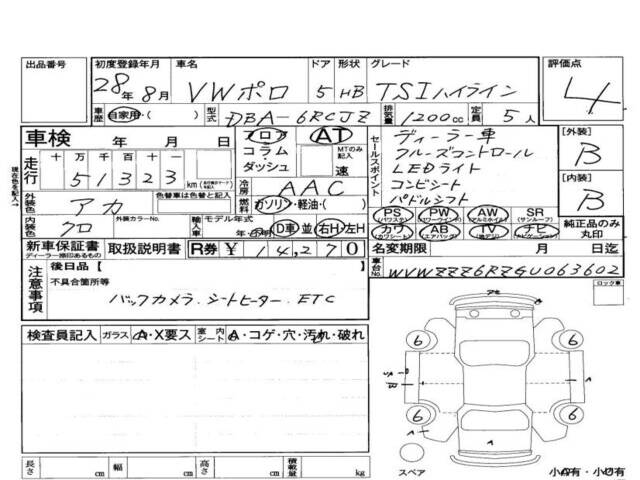 出品番号 初度登録年月 車名 ドア 形状 グレード 評価点
28年 8月 VWポロ 5 HB TSIハイライン 4
車歴 自家用・( ) 型式 DBA-6RCJZ 排気量 1200cc 定員 5人
車検 年 月 日 フロア AT セールスポイント ディーラー車 [外装]
コラム MTのみ記入 クルーズコントロール B
ダッシュ 速 LEDライト
走行 十 万 千 百 十 一
51323 km 冷房 AAC コンビシート [内装]
外装色 アカ 色替車は色替と記入 燃料 ガソリン・軽油・( ) パドルシフト B
内装色 クロ 外装カラーNo. 輸入車 モデル年式 年 D車 並 右H 左H
PS (パワステ) PW (パワーウインド) AW (アルミホイル) SR (サンルーフ) 純正品のみ丸印
カワ (カワシート) AB (エアバッグ) TV (地デジ) ナビ (ナビゲーション)
新車保証書 取扱説明書 R券 ¥ 14,270 名変期限 月 日迄
ディーラー捺印あるもの
車台No. WVWZZZ6RZGU063602
注意事項 後日品[ ]
不具合箇所等
バックカメラ. シートヒーター. ETC
ロック車
検査員記入 ガラス A・X要ス 室内シート A・コゲ・穴・汚れ・破れ
6 6
A
B
A
6 6
A
A
スペア 小A有・小U有
長さ cm 幅 cm 高さ cm 積載量 kg